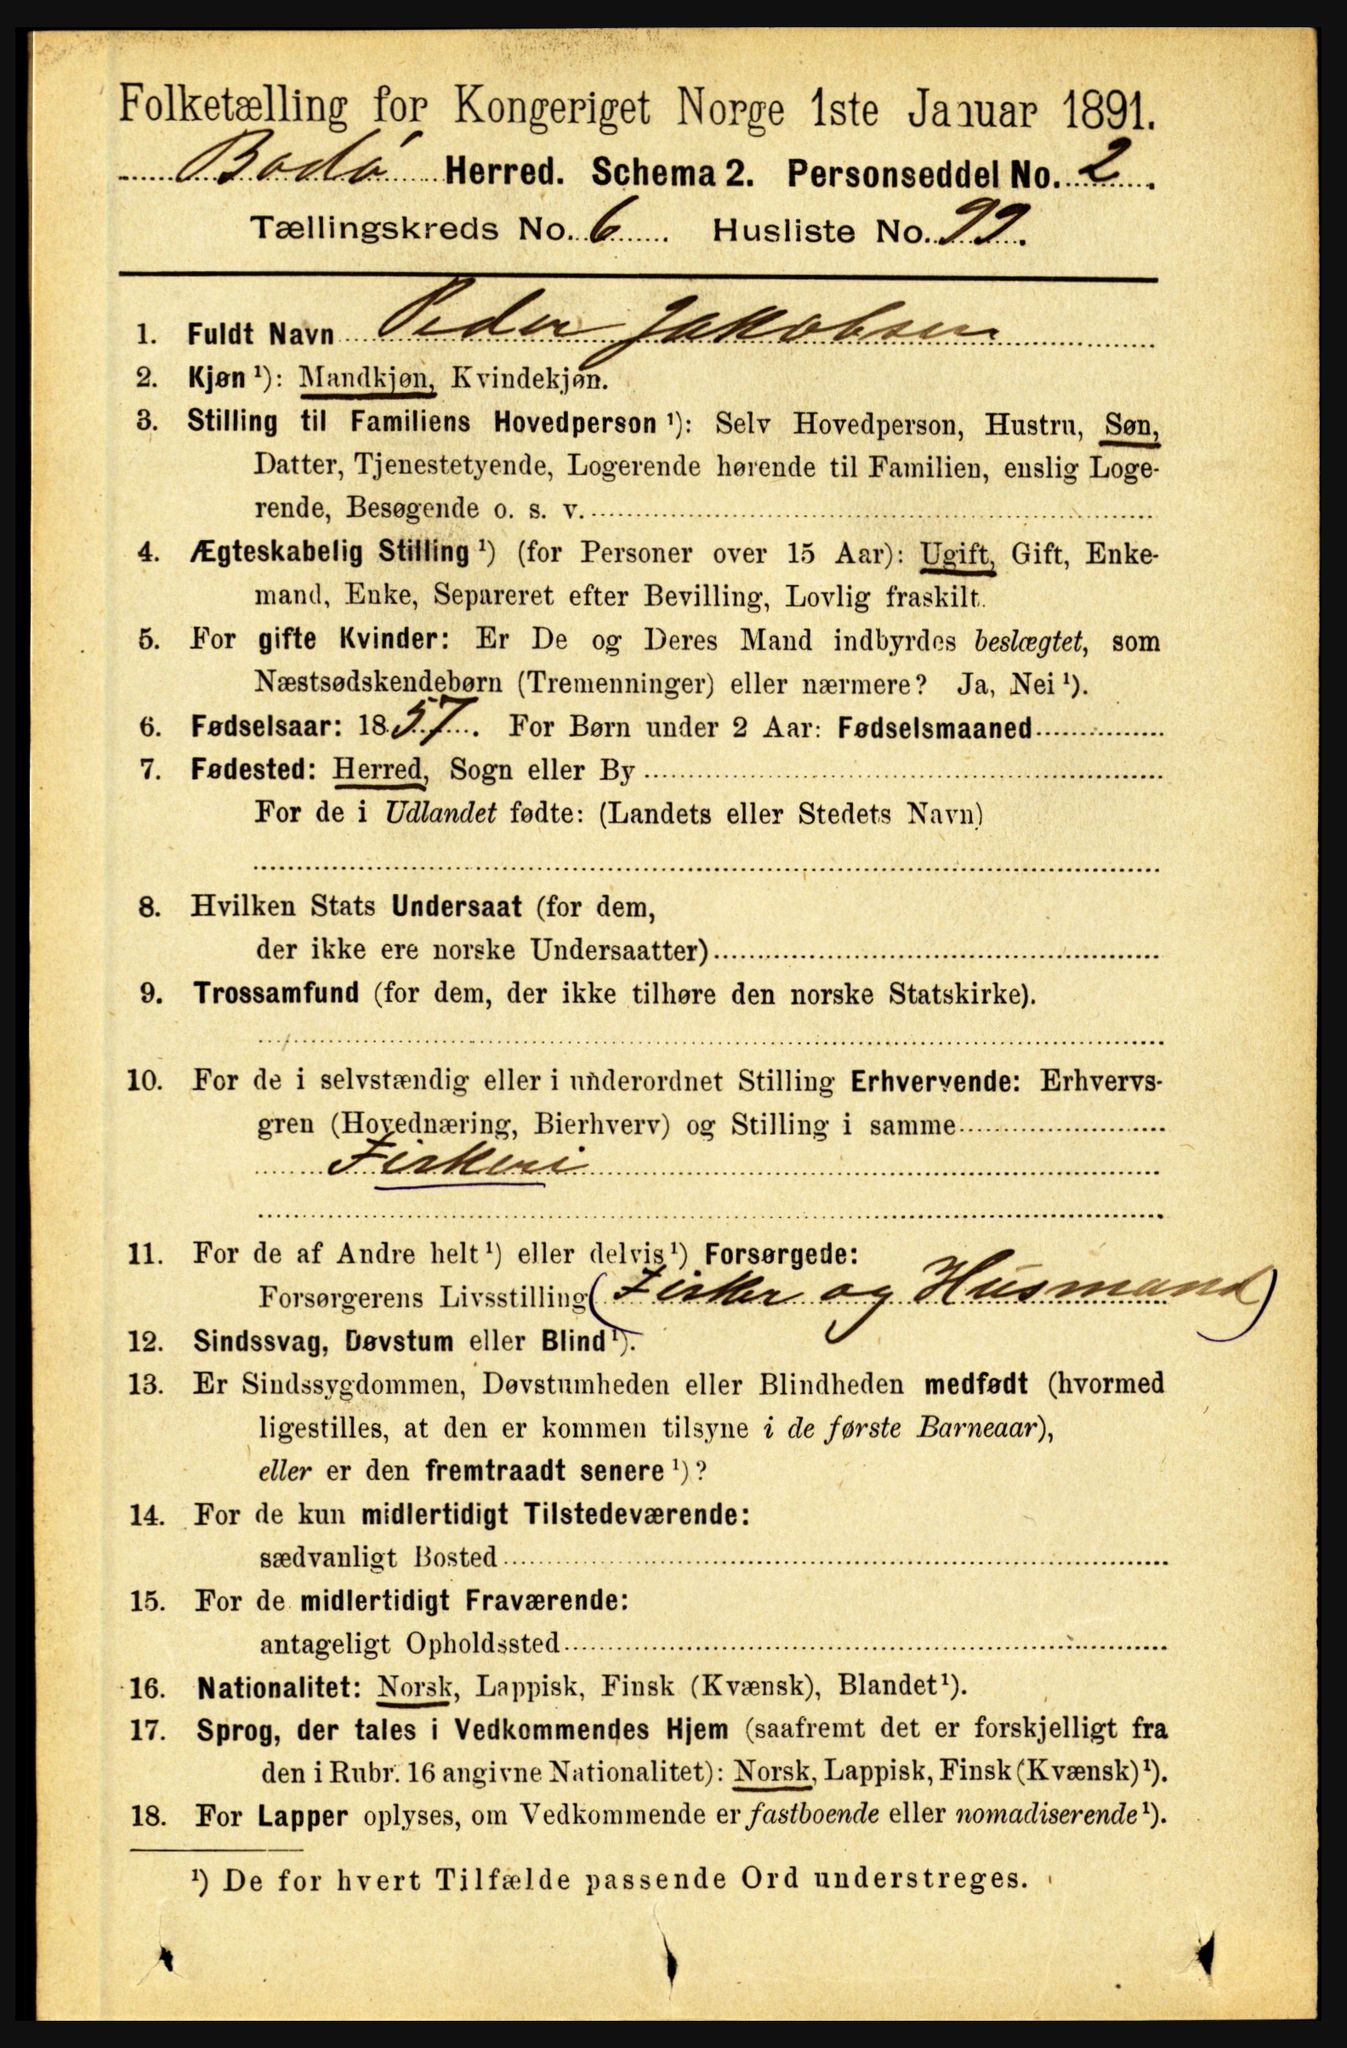 Folketælling for Kongeriget Norge 1ste Januar 1891.
Bodø Herred. Schema 2. Personseddel No. 2.
Tællingskreds No. 6 Husliste No. 99.
1. Fuldt Navn Peder Jakobsen
2. Kjøn ¹): Mandkjøn, Kvindekjøn.
3. Stilling til Familiens Hovedperson ¹): Selv Hovedperson, Hustru, Søn,
Datter, Tjenestetyende, Logerende hørende til Familien, enslig Loge-
rende, Besøgende o. s. v.
4. Ægteskabelig Stilling ¹) (for Personer over 15 Aar): Ugift, Gift, Enke-
mand, Enke, Separeret efter Bevilling, Lovlig fraskilt.
5. For gifte Kvinder: Er De og Deres Mand indbyrdes beslægtet, som
Næstsødskendebørn (Tremenninger) eller nærmere? Ja, Nei ¹).
6. Fødselsaar: 1857. For Børn under 2 Aar: Fødselsmaaned
7. Fødested: Herred, Sogn eller By
For de i Udlandet fødte: (Landets eller Stedets Navn)
8. Hvilken Stats Undersaat (for dem,
der ikke ere norske Undersaatter)
9. Trossamfund (for dem, der ikke tilhøre den norske Statskirke).
10. For de i selvstændig eller i underordnet Stilling Erhvervende: Erhvervs-
gren (Hovednæring, Bierhverv) og Stilling i samme
Fiskeri
11. For de af Andre helt ¹) eller delvis ¹) Forsørgede:
Forsørgerens Livsstilling (Fisker og Husmand)
12. Sindssvag, Døvstum eller Blind ¹).
13. Er Sindssygdommen, Døvstumheden eller Blindheden medfødt (hvormed
ligestilles, at den er kommen tilsyne i de første Barneaar),
eller er den fremtraadt senere ¹)?
14. For de kun midlertidigt Tilstedeværende:
sædvanligt Bosted
15. For de midlertidigt Fraværende:
antageligt Opholdssted
16. Nationalitet: Norsk, Lappisk, Finsk (Kvænsk), Blandet ¹).
17. Sprog, der tales i Vedkommendes Hjem (saafremt det er forskjelligt fra
den i Rubr. 16 angivne Nationalitet): Norsk, Lappisk, Finsk (Kvænsk) ¹).
18. For Lapper oplyses, om Vedkommende er fastboende eller nomadiserende ¹).
¹) De for hvert Tilfælde passende Ord understreges.